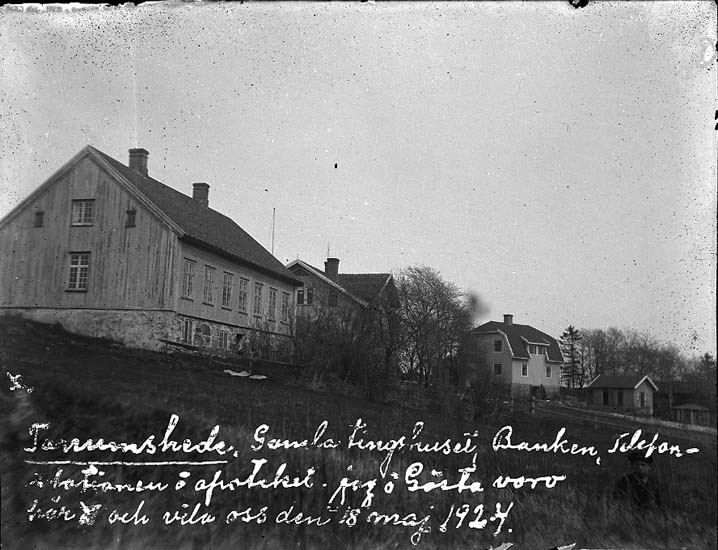 Tanumshede, Gamla tingshuset, Banken, Telefon-
stationen ö apotiket. jag ö Gösta voro
här x och vila oss den 18 maj 1924.
x